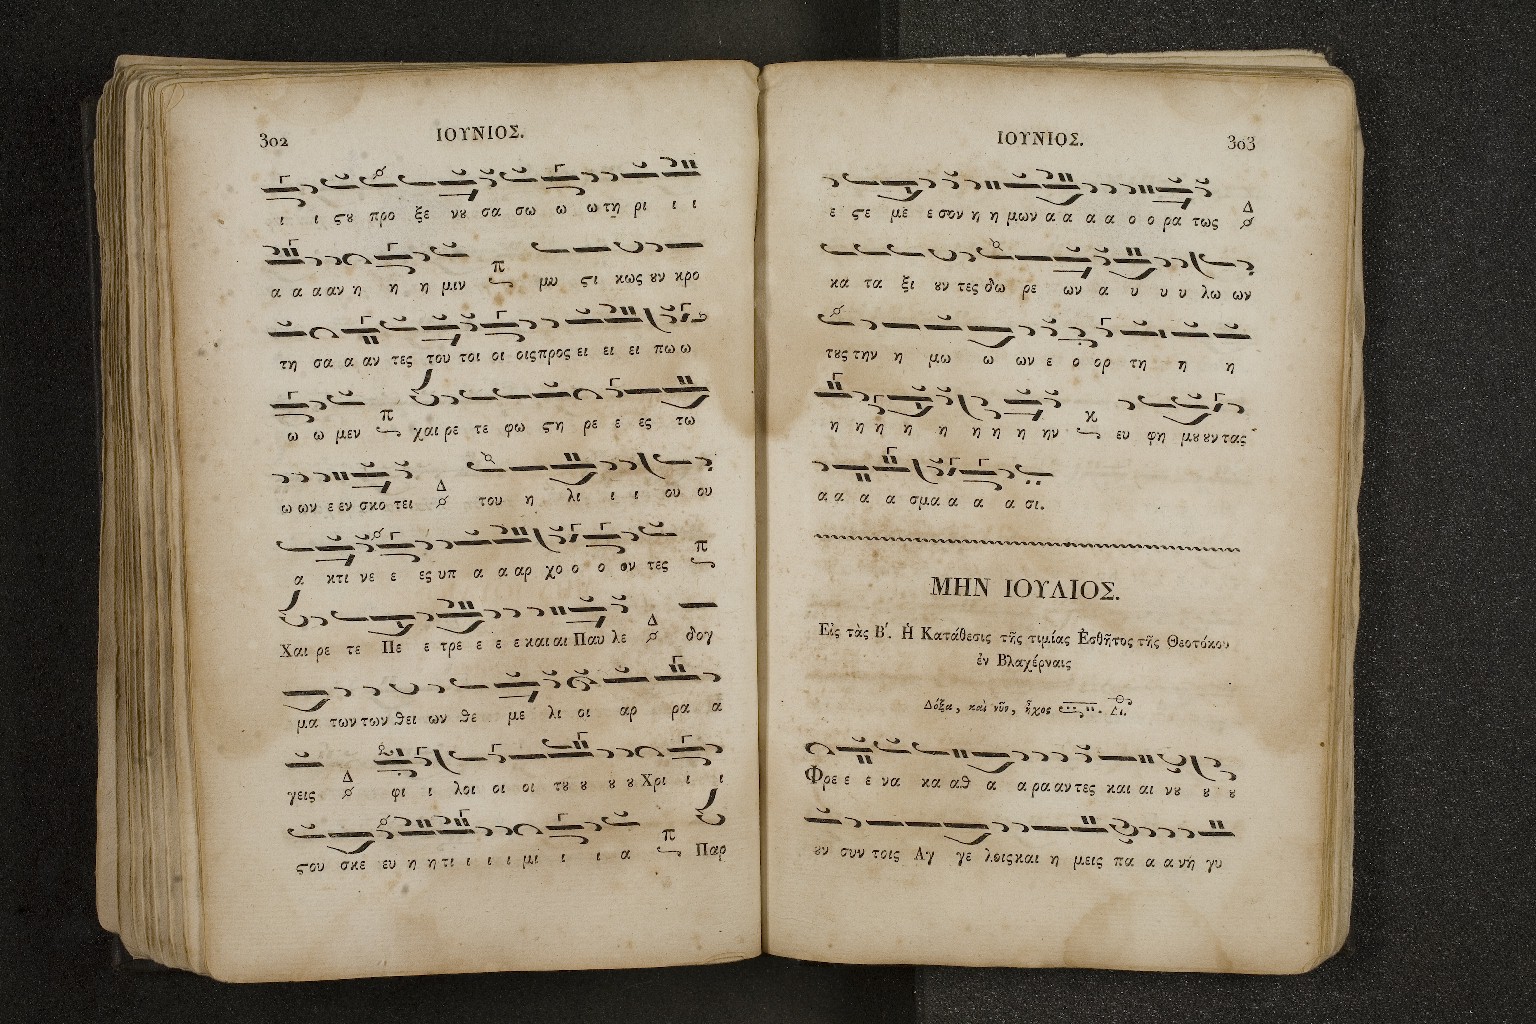 302 ΙΟΥΝΙΟΣ.
ι ι ςȣ προ ξε νȣ σα σω ω ω τη ρι ι ι
α α α αν η η η μιν π μυ ςι κως ȣν κρο
τη σα α αν τες του τοι οι οιςπρος ει ει ει πω ω
ω ω μεν π χαι ρε τε φω ςη ρε ε ες τω
ω ων ε εν σκο τει Δ του η λι ι ι ου ου
α κτι νε ε ες υπ α α αρ χο ο ο ον τες π
Χαι ρε τε Πε ε τρε ε ε ε και αι Παυ λε Δ δογ
μα των των θει ων θε με λι οι αρ ρα α
γεις Δ φι ι λοι οι οι τȣ ȣ ȣ ȣ Χρι ι ι
ςου σκε ευ η η τι ι ι ι μι ι ι α π Παρ
ΙΟΥΝΙΟΣ. 303
ε ςε με ε σον η η μων α α α α ο ο ρα τως Δ
κα τα ξι ȣν τες δω ρε ων α υ υ υ λω ων
τȣς την η μω ω ων ε ο ορ τη η η
η η η η η η η η ην κ ευ φη μȣ ȣν τας
α α α α σμα α α α σι.
ΜΗΝ ΙΟΥΛΙΟΣ.
Εἰς τὰς Β΄. Ἡ Κατάθεσις τῆς τιμίας Ἐσθῆτος τῆς Θεοτόκου
ἐν Βλαχέρναις
Δόξα, καὶ νῦν, ἦχος Δι.
Φρε ε ε να κα αθ α α ρα αν τες και αι νȣ ȣ ȣ
ȣν συν τοις Αγ γε λοιςκαι η μεις πα α α νη γυ